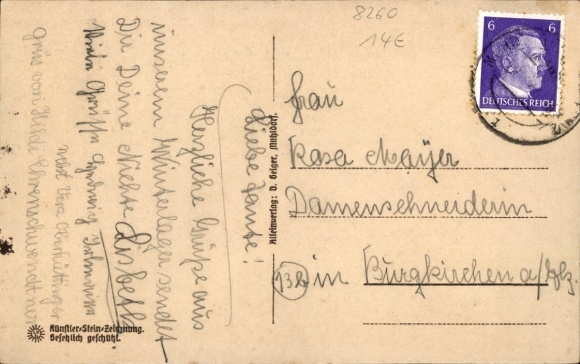 8260
14€
6 6
DEUTSCHES REICH
Liebe Tante!
Herzliche Grüße aus
unserem Winterlager sendet
Dir Deine Nichte Lisbeth
Viele Grüße
nebst
Gruß von Heidi
Frau
Rosa Mayer
Damenschneiderin
13b in Burgkirchen a/Alz.
Alleinverlag: D. Geiger, Mühldorf.
Künstler-Stein-Zeichnung.
Gesetzlich geschützt.